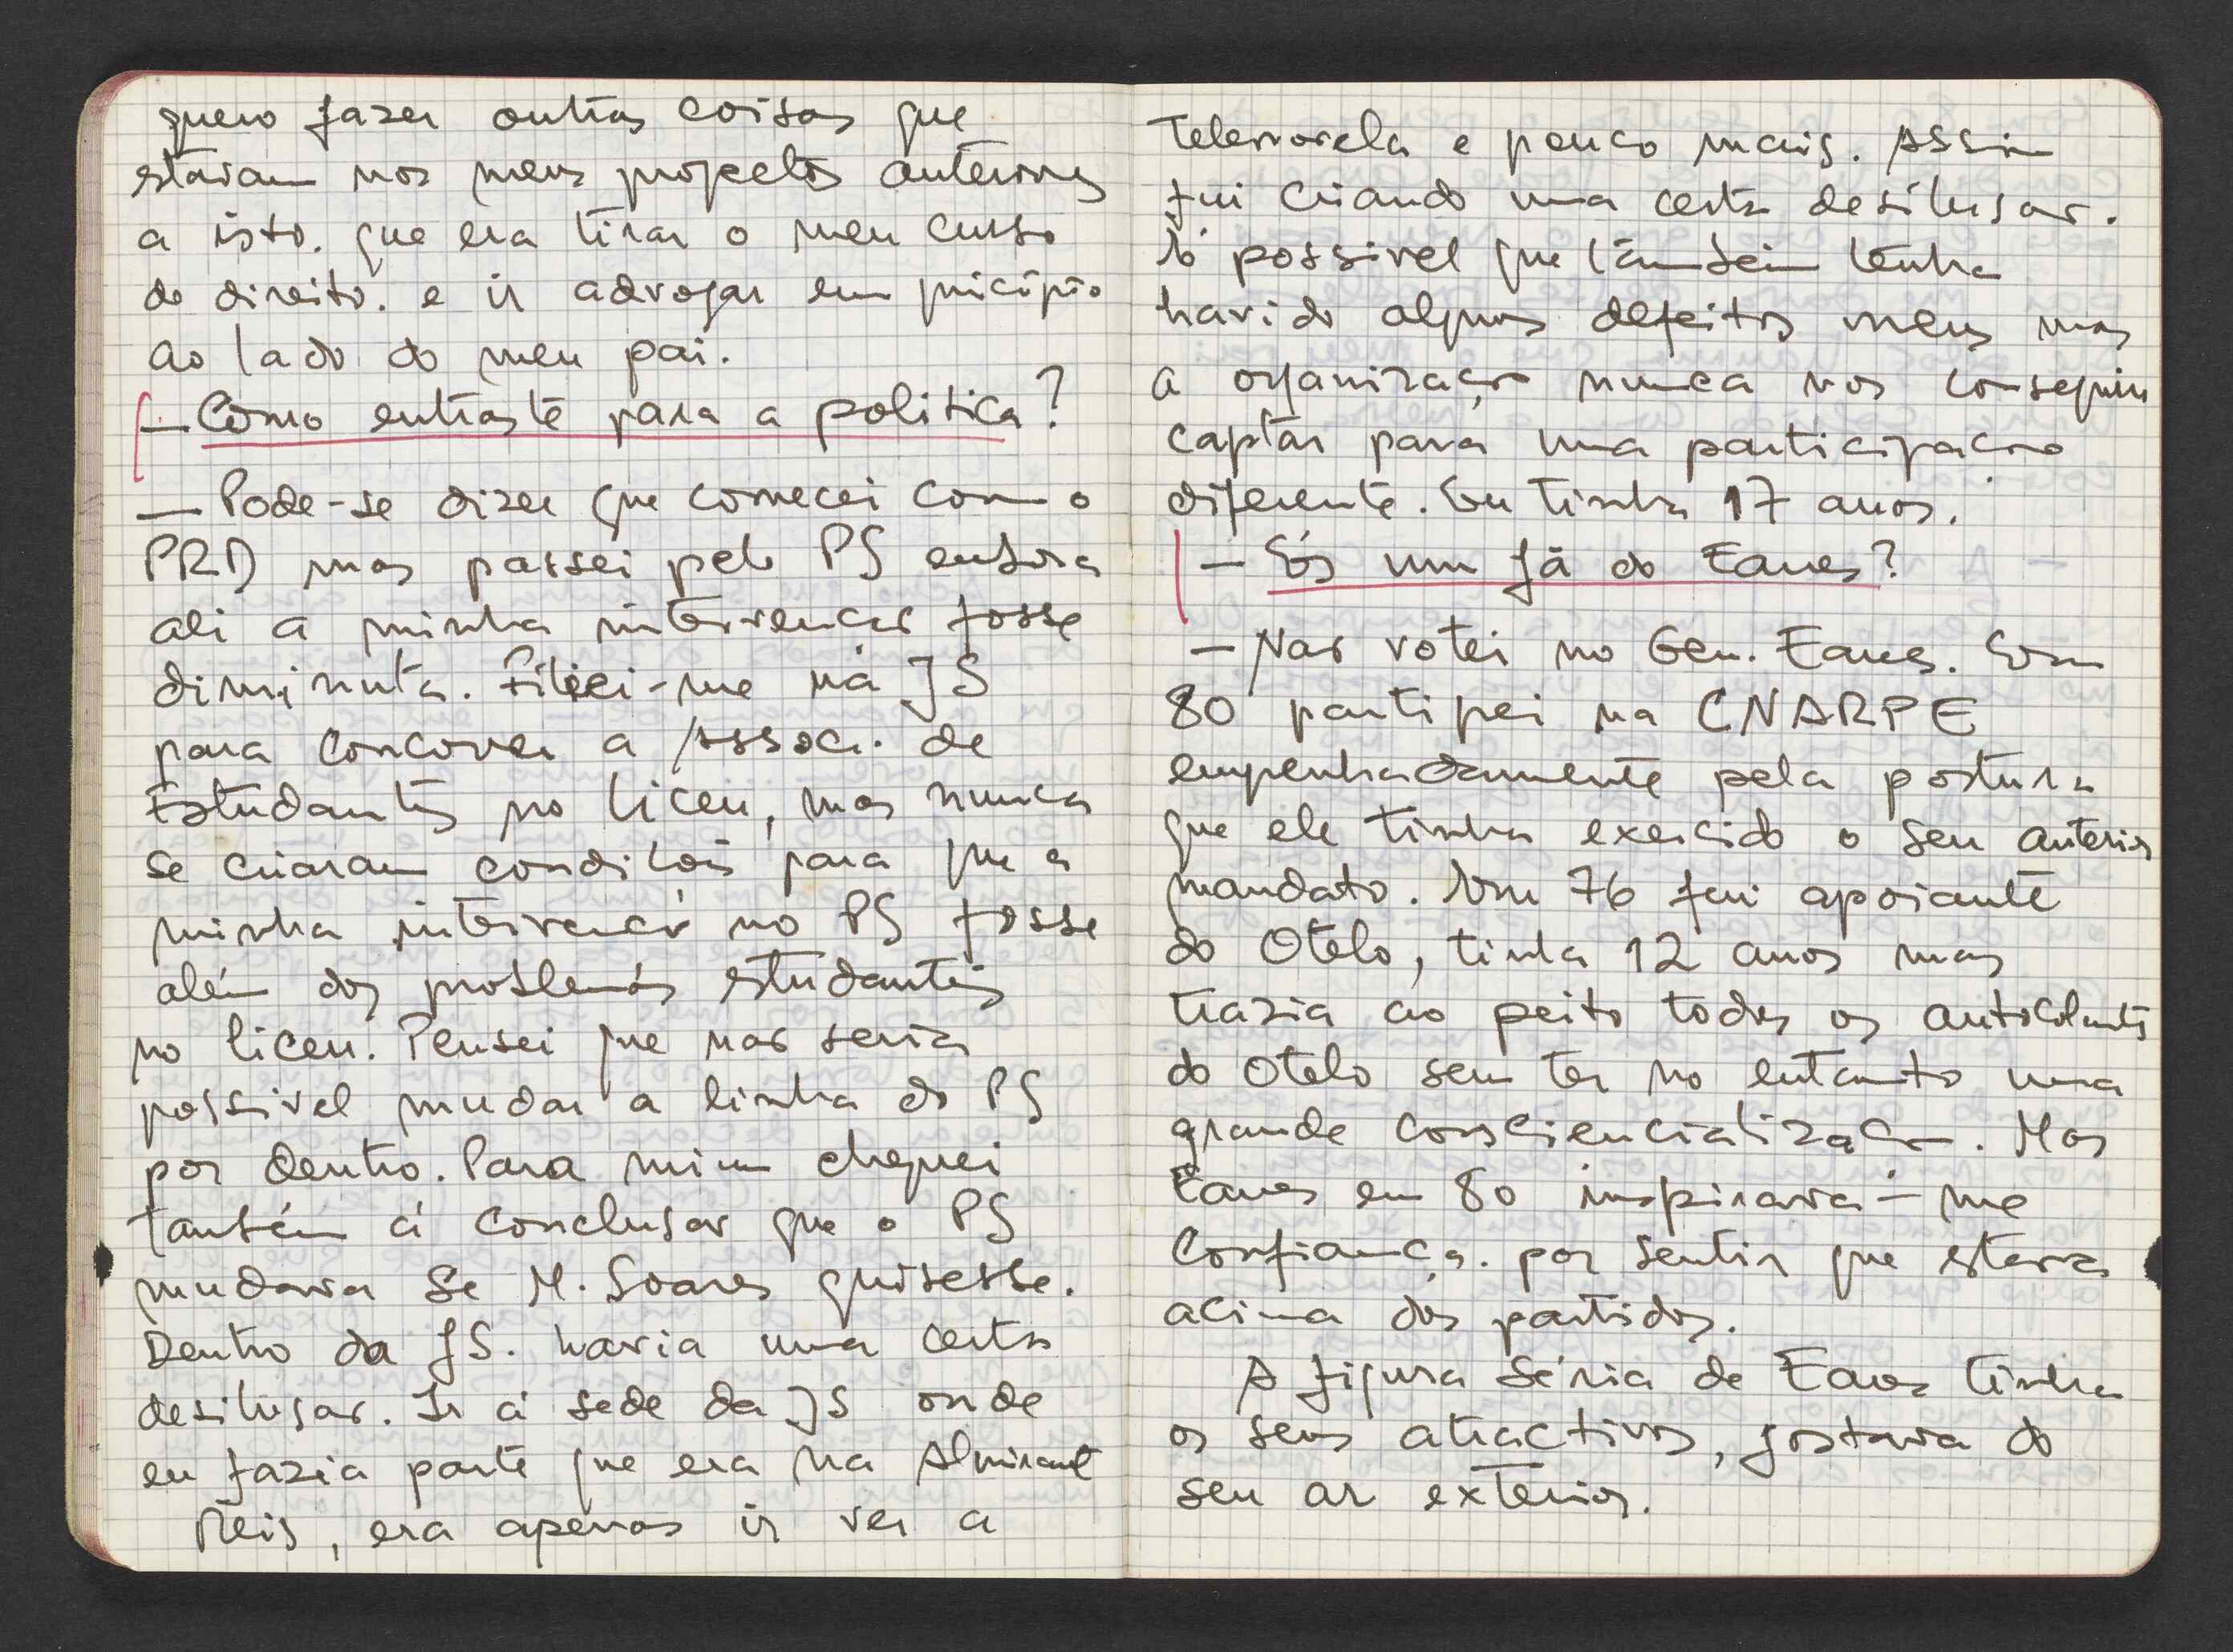 quero fazer outras coisas que
estavam nos meus projectos anteriores
a isto. que era tirar o meu curso
de direito. e ir advogar em pricípio
ao lado do meu pai.
— Como entraste para a politica?
— Pode-se dizer que comecei com o
PRD mas passei pelo PS embora
ali a minha intervenção fosse
diminuta. Filiei-me na JS
para concorrer a Associ. de
Estudantes no liceu, mas nunca
se criaram condições para que a
minha intervenção no PS fosse
além dos problemas estudantis
no liceu. Pensei que não seria
possivel mudar a linha do PS
por dentro. Para mim cheguei
também á conclusão que o PS
mudava se M. Soares quisesse.
Dentro da JS. havia uma certa
desilusão. Ir á sede da JS onde
eu fazia parte que era na Almirante
Reis, era apenas ir ver a
telenovela e pouco mais. Assim
fui criando uma certa desilusão.
É possivel que também tenha
havido alguns defeitos meus mas
a organização nunca nos conseguiu
captar para uma participação
diferente. Eu tinha 17 anos.
— És um fã do Eanes?
— Não votei no Gen. Eanes. Em
80 partipei na CNARPE
empenhadamente pela postura
que ele tinha exercido o seu anterior
mandato. Em 76 fui apoiante
do Otelo, tinha 12 anos mas
trazia ao peito todos os autocolantes
do Otelo sem ter no entanto uma
grande consciencialização. Mas
Eanes em 80 inspirava-me
confiança. por sentir que estava
acima dos partidos.
A figura séria de Eanes tinha
os seus atractivos, gostava do
seu ar exterior.